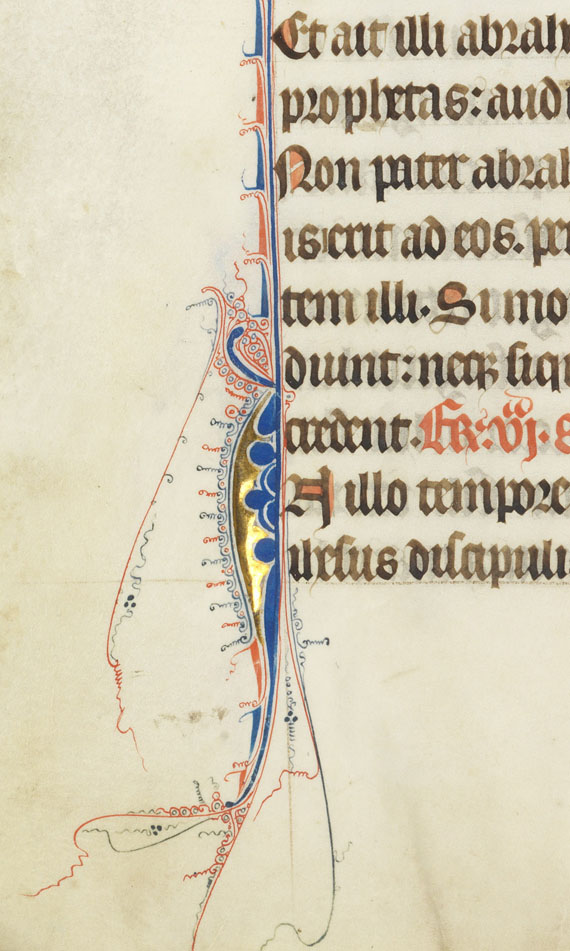 Et ait illi abrah
prophetas: audi
Non pater abrah
ierit ad eos. pe
tem illi. Si mo
diunt: neqʒ siqu
credent. fer. vj.
In illo tempore
iħesus discipuli